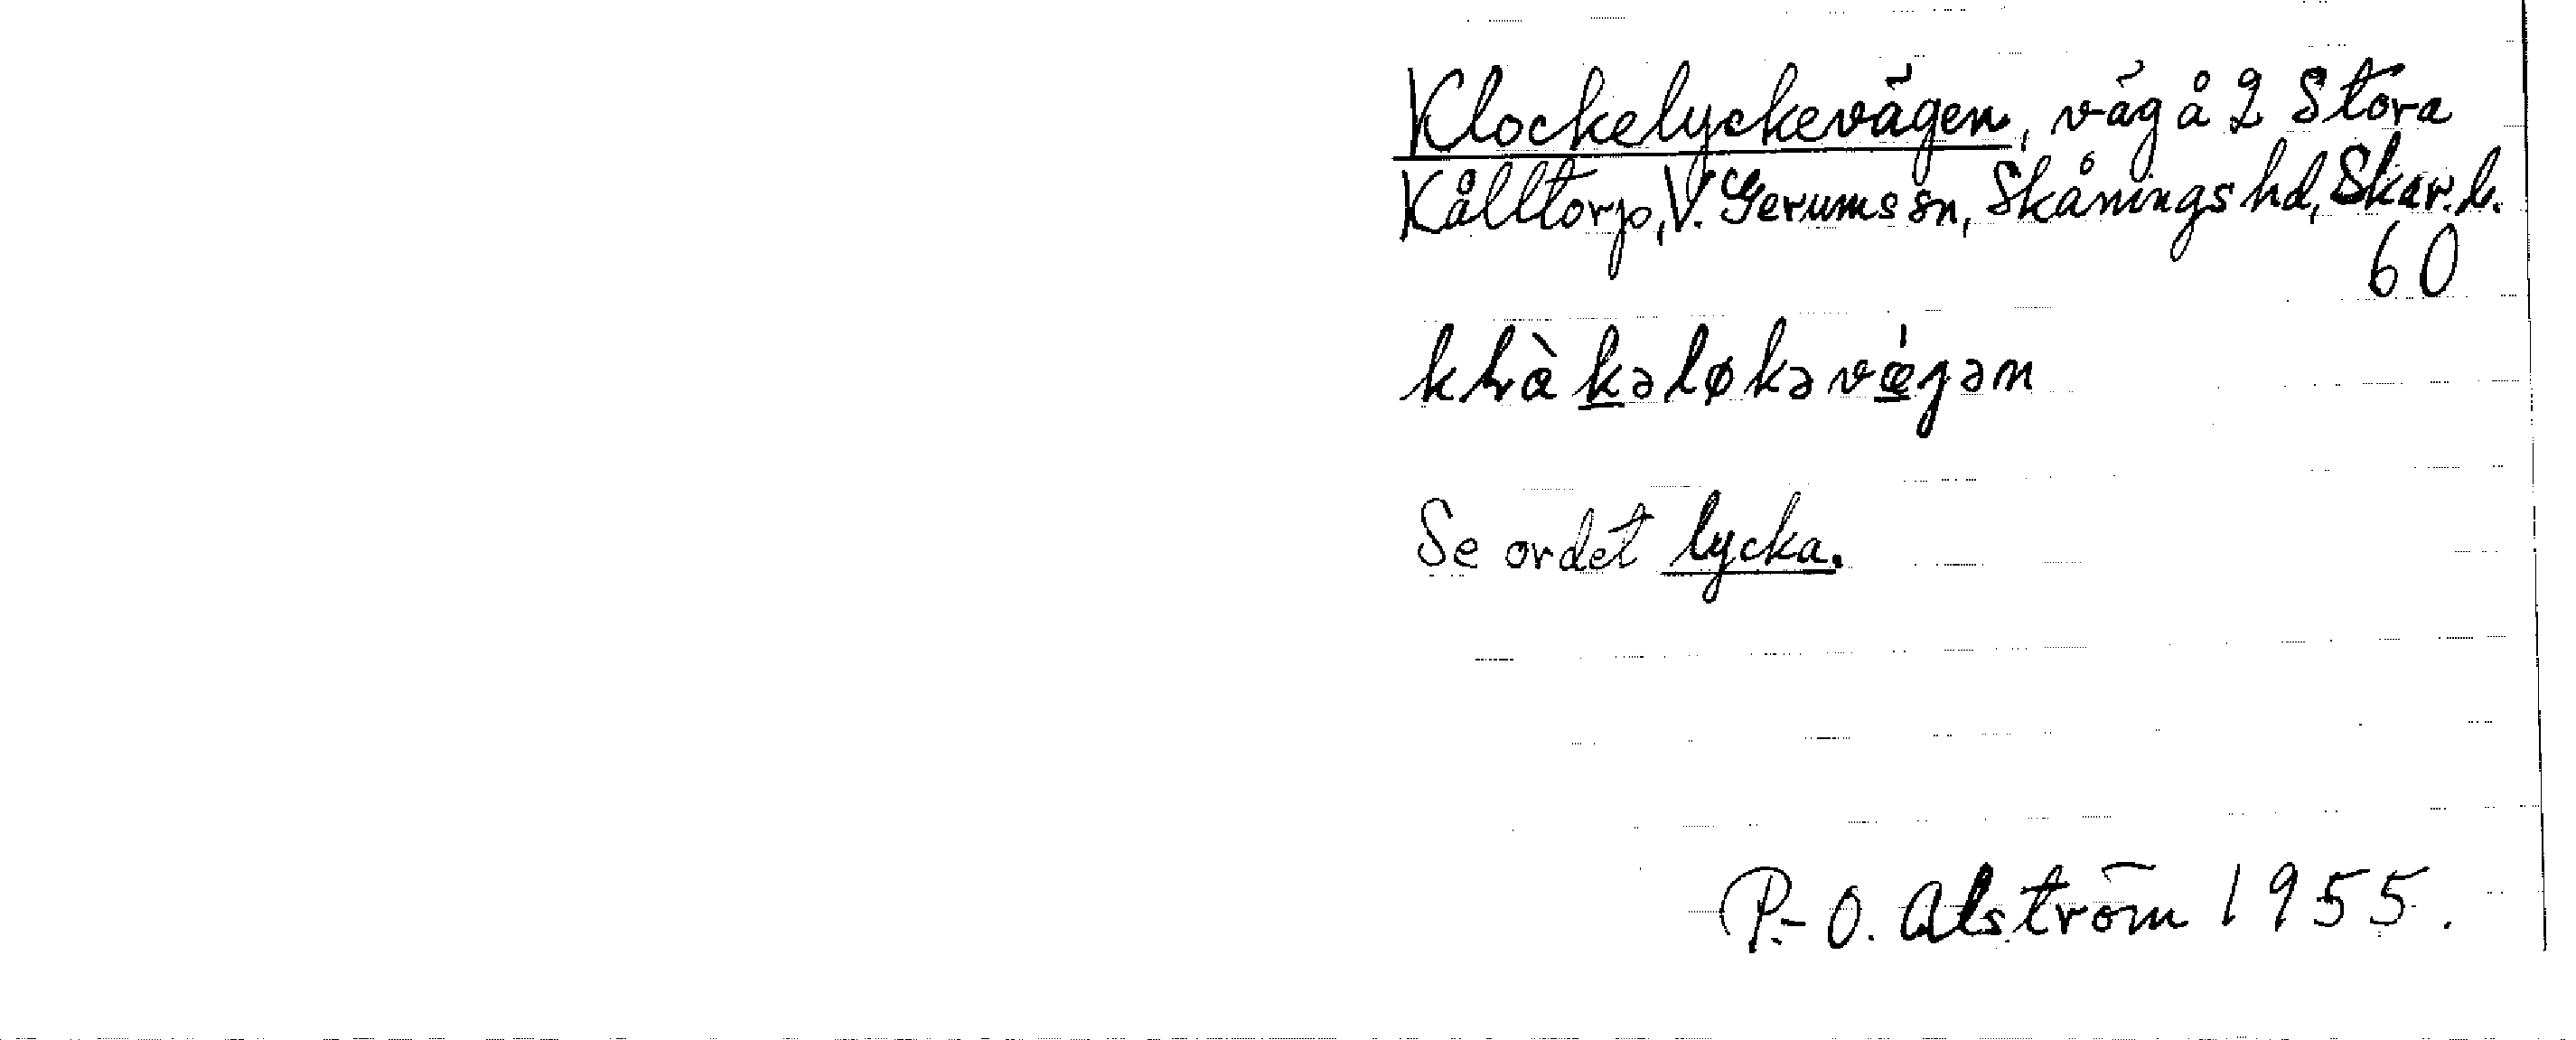 Klockelyckevägen, väg å 2 Stora
Kålltorp, V. Gerums sn, Skånings hd, Skar. l.
60
kLàkaləkəvæ̀gən
Se ordet lycka.
P.-O. Alström 1955.